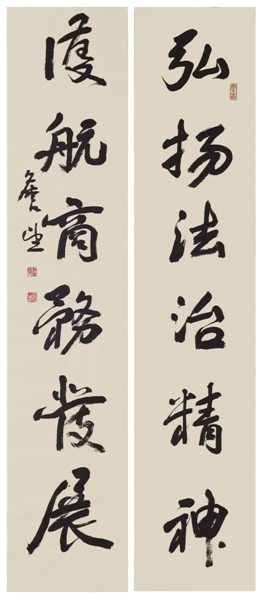 弘扬法治精神
護航商務發展